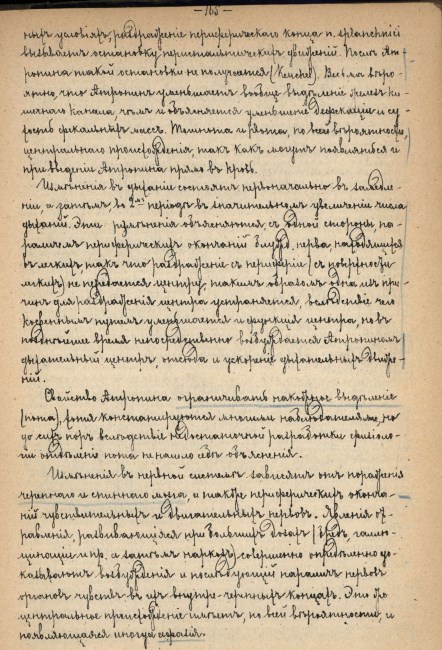 — 163 —
ныхъ условіяхъ, раздраженіе периферическаго конца n. splanchnici
вызываетъ остановку перистальтическихъ движеній. Послѣ Ат-
ропина такой остановки не получается (Keuchel). Весьма вѣро-
ятно, что Атропинъ уменьшаетъ вообще выдѣленіе железъ ки-
шечнаго канала, чѣмъ и объясняется уменьшеніе дефекаціи и су-
хость фекальныхъ массъ. Тошнота и рвота, по всей вѣроятности,
центральнаго происхожденія, такъ какъ могутъ появляться и
при введеніи Атропина прямо въ кровь.
Измѣненія въ дыханіи состоятъ первоначально въ замедле-
ніи, а затѣмъ, во 2-мъ періодѣ въ значительномъ увеличеніи числа
дыханій. Эти измѣненія объясняются, съ одной стороны, па-
раличемъ периферическихъ окончаній блужд. нерва, находящихся
въ легкихъ, такъ что раздраженіе съ периферіи (съ поверхности
легкихъ) не передается центру, такимъ образомъ одна изъ при-
чинъ для раздраженія центра устраняется, вслѣдствіе чего
косвеннымъ путемъ уменьшается и функція центра, но въ
позднѣйшее время непосредственно возбуждается Атропиномъ
дыхательный центръ, отсюда и ускореніе дыхательныхъ движе-
ній.
Свойство Атропина ограничивать накожное выдѣленіе
(пота), хотя констатируются многими наблюдателями, но
до сихъ поръ вслѣдствіе недостаточной разработки физіоло-
гіи отдѣленія пота не нашло себѣ объясненія.
Измѣненія въ нервной системѣ зависятъ отъ пораженія
черепнаго и спиннаго мозга, а также периферическихъ оконча-
ній чувствительныхъ и двигательныхъ нервовъ. Явленія от-
равленія, развивающіяся при большихъ дозахъ (бредъ, галлю-
цинаціи и пр. а затѣмъ наркозъ) совершенно опредѣленно до-
казываютъ возбужденія и послѣдующій параличъ нервовъ
органовъ чувствъ въ ихъ внутри-черепныхъ концахъ. Это же
центральное происхожденіе имѣетъ, по всей вѣроятности, и
появляющаяся иногда афазія.